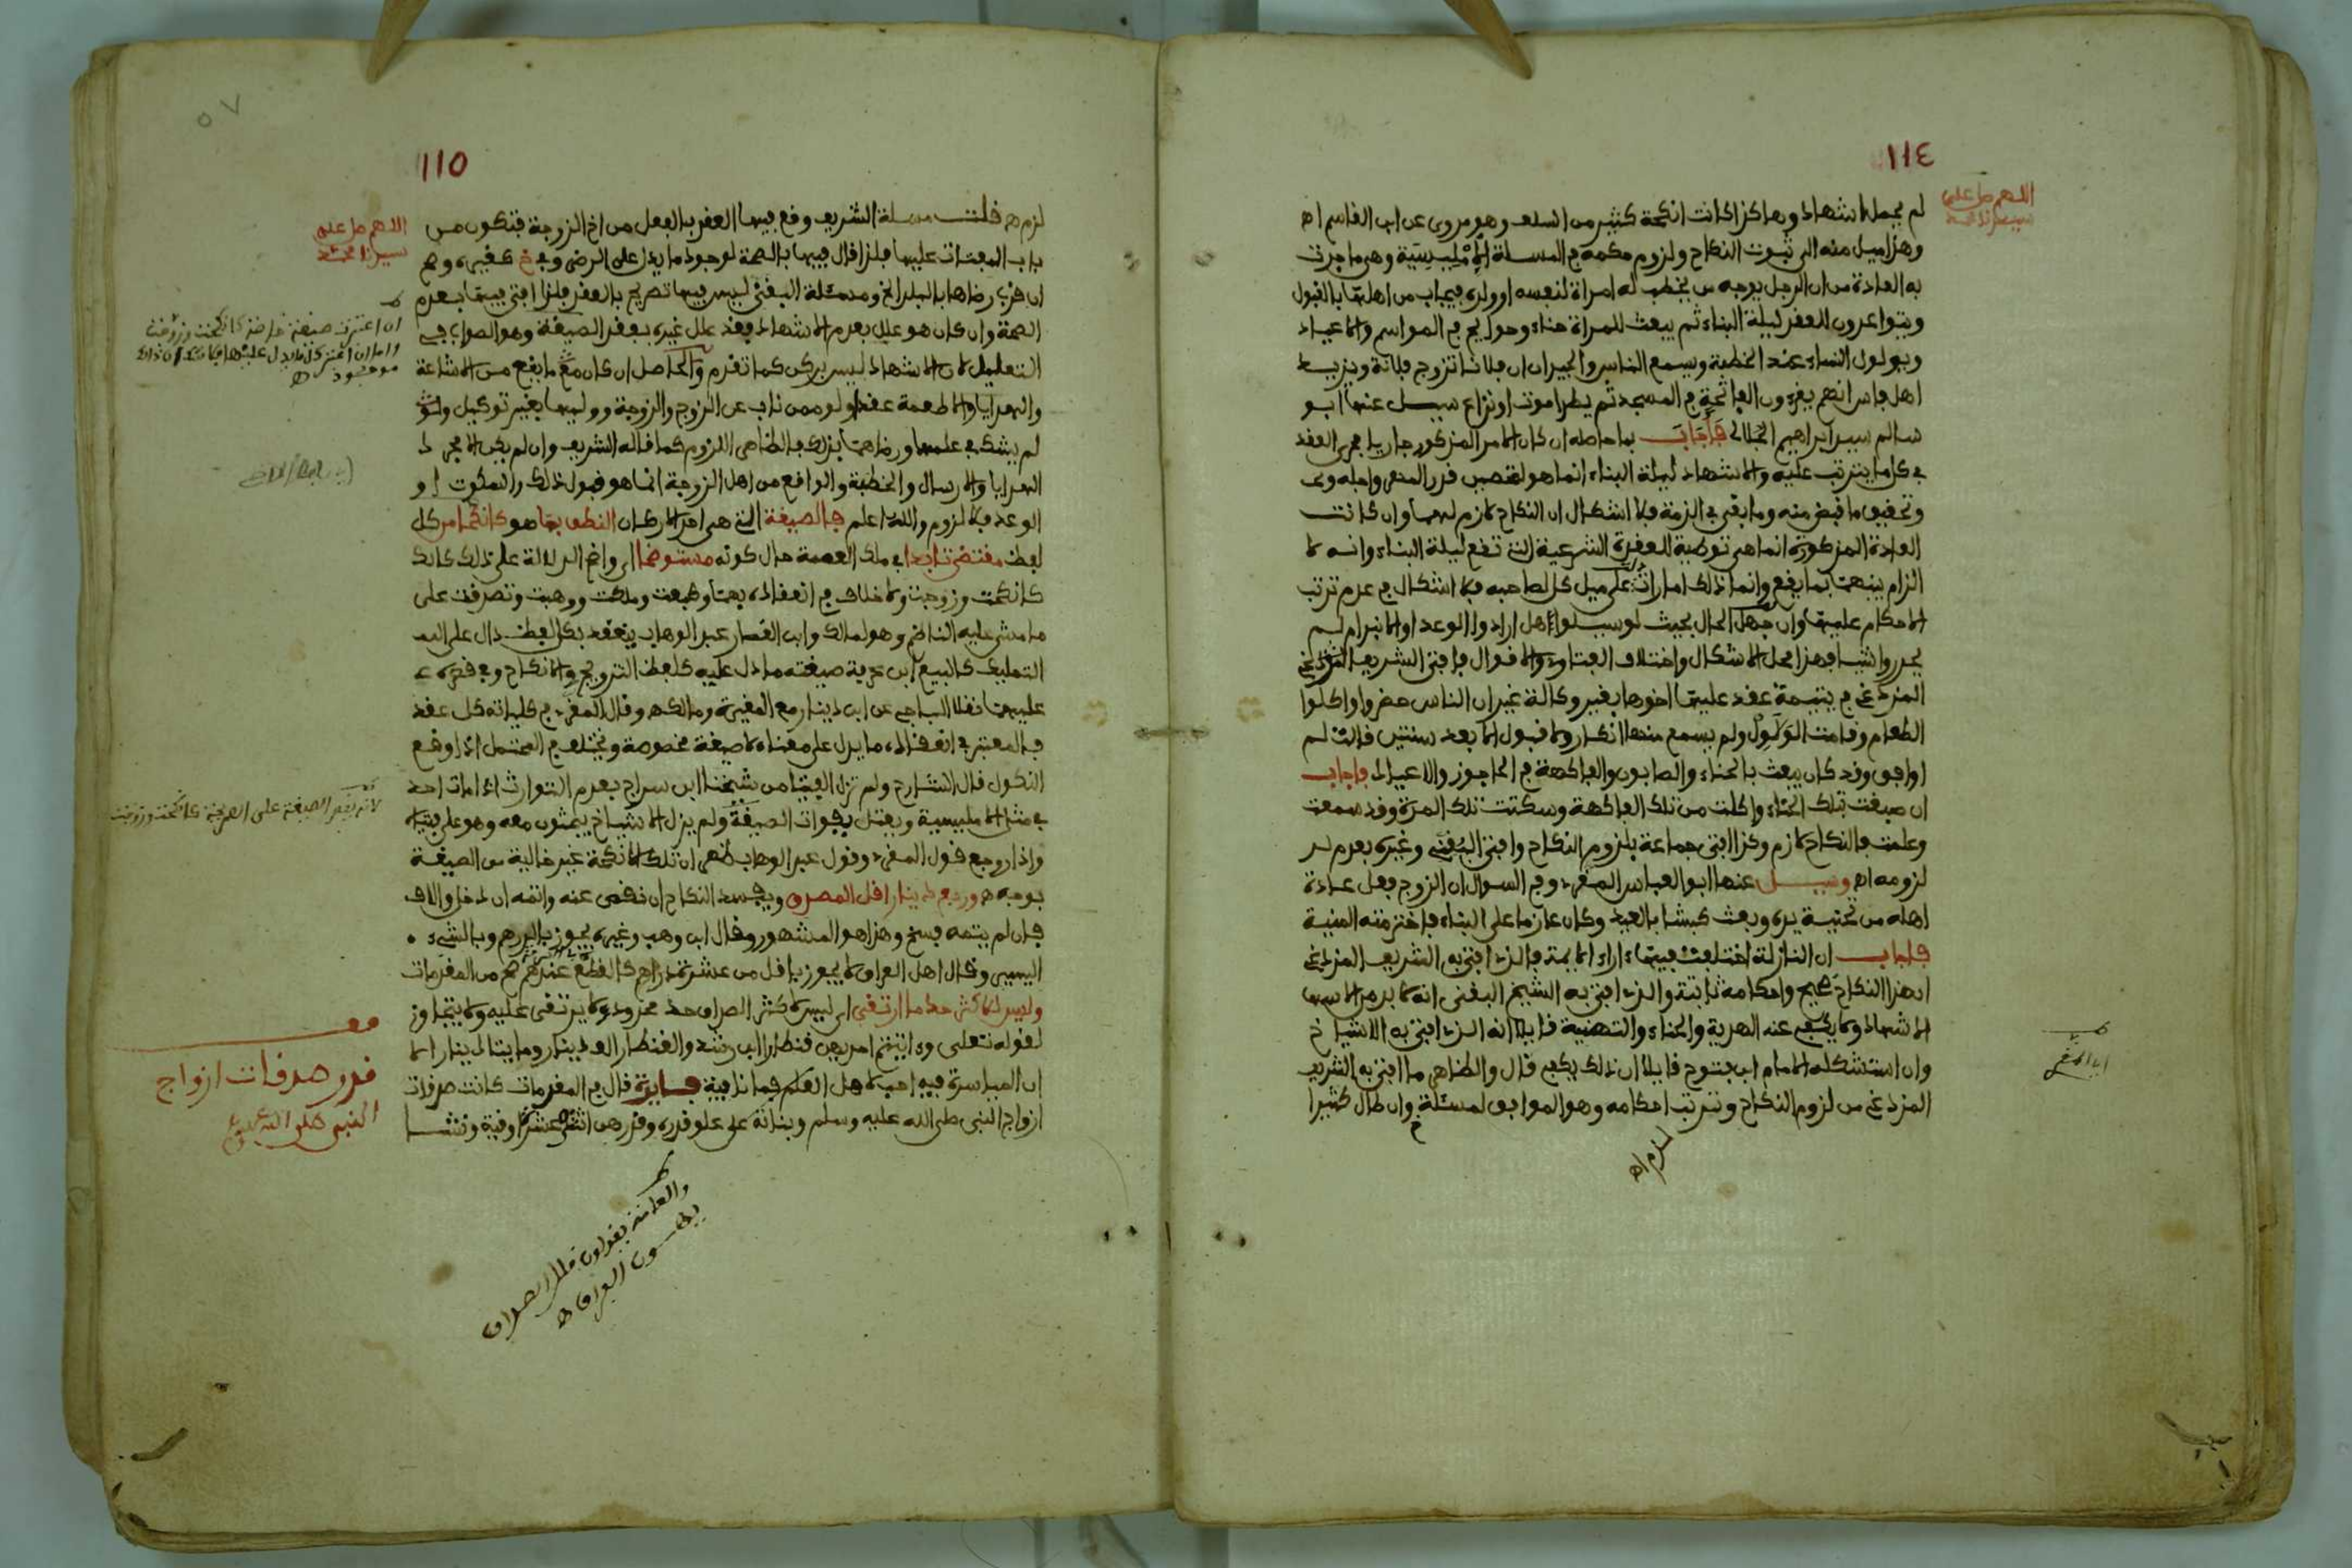 ١١٤
اللهم صل على
سيدنا محمد
لم يجملا اشهاد وهاكذا كانت انكحة كثير من السلف وهو مروي عن ابن القاسم اه
وهذا ميل منه الى ثبوت النكاح ولزوم حكمه في المسلة الامليسية وهي ما جرت
به العادة من ان الرجل يوجه من يخطب له امراة لنفسه او ولده فيجاب من اهلها بالقبول
ويتواعدون للعقد ليلة البناء ثم يبعث للمراة حناء وحوايج في المواسم والاعياد
ويولول النساء عند الخطبة ويسمع الناس والجيران ان فلانا تزوج فلانة ويزيد
اهل فاس انهم يقرءون الفاتحة في المسجد ثم يطرا موت او نزاع سيل عنها ابو
سالم سيد ابراهيم الجلالي فاجاب بما حاصله ان كان الامر المذكور جاريا مجرى العقد
في كل ما يترتب عليه والاشهاد ليلة البناء انما هو لتحصين قدر المهر واجله و
وتحقيق ما قبض منه وما بقي في الذمة فلا اشكال ان النكاح لازم لهما وان كانت
العادة المذكورة انما هي توطية للعقدة الشرعية التي تقع ليلة البناء وانه لا
الزام بينهما بما يقع وانما ذلك امارات على ميل كل لصاحبه فلا اشكال في عدم ترتب
الاحكام عليها وان جهل الحال بحيث لو سيلوا هل ارادوا الوعد او الانبرام لم
يحرروا شيا فهذا محل الاشكال واختلاف الفتاوي والاقوال فافتى الشريف
المزدغي في يتيمة عقد عليها اخوها بغير وكالة غير ان الناس حضروا واكلوا
الطعام وقامت الولاول ولم يسمع منها انكار ولا قبول الا بعد سنتين قالت لم
اوافق وقد كان يبعث بالحناء والصابون والفاكهة في الحاجوز والاعياد فاجاب
ان صبغت بتلك الحناء واكلت من تلك الفاكهة وسكتت تلك المدة وقد سمعت
وعلمت فالنكاح لازم وكذا افتى جماعة بلزوم النكاح وافتى البقني وغيره بعدم
لزومه اه وسيل عنها ابو العباس المقري وفي السوال ان الزوج فعل عادة
اهله من تحنية يده وبعث كبشا بالعيد وكان عازما على البناء فاخترمته المنية
فاجاب ان النازلة اختلفت فيها ءاراء الايمة فالذي افتى به الشريف المزدغي
ان هذا النكاح صحيح واحكامه ثابتة والذي افتى به الشيخ البقني انه لا بد من الاسما
الاشهاد ولا يكفي عنه الهدية والحناء والتهنية قايلا انه الذي افتى به الاشياخ
وان استشكله الامام ابن فتوح قايلا ان ذلك يكفي قال والظاهر ما افتى به الشريف
المزدغي من لزوم النكاح وترتب احكامه وهو الموافق لمسئلة وان طال كثيرا
لزم اه
١١٥
٥٧
اللهم صل على
سيدنا محمد
لزم اه قلت مسلة الشريف وقع فيها العقد بالفعل من اخ الزوجة فتكون من
باب المفتات عليها فلذا قال فيها بالصحة لوجود ما يدل على الرضى وفي خ كغيره وصح
ان قرب رضاها بالبلد الخ ومسئلة البقني ليس فيها تصريح بالعقد فلذا افتى فيها بعدم
الصحة وان كان هو علل بعدم الاشهاد فقد علل غيره بفقد الصيغة وهو الصواب في
التعليل لان الاشهاد ليس بركن كما تقدم والحاصل ان كان مع ما يقع من الاشاعة
والهدايا والاطعمة عقد ولو ممن ناب عن الزوج والزوجة ووليها بغير توكيل
لم يشك في علمهما ورضاهما بذلك فالظاهر اللزوم كما قاله الشريف وان لم يكن الا مجرد
الهدايا والارسال والخطبة والواقع من اهل الزوجة انما هو قبول ذلك والسكوت او
الوعد فلا لزوم والله اعلم فالصيغة التي هي احد الاركان النطق بما هو كانكحا من كل
لفظ مقتض تابدا في ملك العصمة حال كونه مستوضحا اي واضح الدلالة على ذلك كذلك
كانكحت وزوجت ولا خلاف في انعقاده بهما وبعت وملكت ووهبت وتصدقت على
ما مشى عليه الناظم وهو لمالك وابن القصار عبد الوهاب ينعقد بكل لفظ دال على
التمليك كالبيع ابن عرفة صيغته ما دل عليه كلفظ التزويج والانكاح وفي قصره
عليهما نقلا الباجي عن ابن دينار مع المغيرة ومالك وقال المقري في كلياته كل عقد
فالمعتبر في انعقاده ما يدل على معناه لا صيغة مخصوصة ويختلف في المحتمل اذا وقع
النكول قال الشارح ولم تزل الفتيا من شيخنا ابن سراج بعدم التوارث اذا مات احد
في مثل الامليسية ويعتل بفوات الصيغة ولم يزل الاشياخ يبحثون معه وهو على فتياه
واذا روجع قول المقري وقول عبد الوهاب ظهر ان تلك الانكحة غير خالية من الصيغة
بوجه اه وربع دينار اقل المصدق ويفسد النكاح ان نقص عنه واتمه ان دخل والاف
فان لم يتمه فسخ وهذا هو المشهور وقال ابن وهب وغيره يجوز بالدرهم وبالشيء
اليسير وقال اهل العراق لا يجوز باقل من عشرة دراهم كالقطع عندهم من المقدمات
وليس للاكثر حد ما ارتقى اي ليس لاكثر الصداق حد محدود لا يرتقى عليه ولا يتجاوز
لقوله تعلى وءاتيتم احديهن قنطارا ابن رشد والقنطار الف دينار ومايتا دينار الا
ان المياسرة فيه احب لاهل العلم فايدة قال في المقدمات كانت صدقات
ازواج النبي صلى الله عليه وسلم وبناته على علو قدره وقدرهن اثنتي عشرة اوقية ونشا
ان اعتبرت صيغة
موجود اه
لانه يقصر الصيغة على الصريحة كانكحت وزوجت
قف
قدر صدقات ازواج
النبي صلى الله عليه وسلم